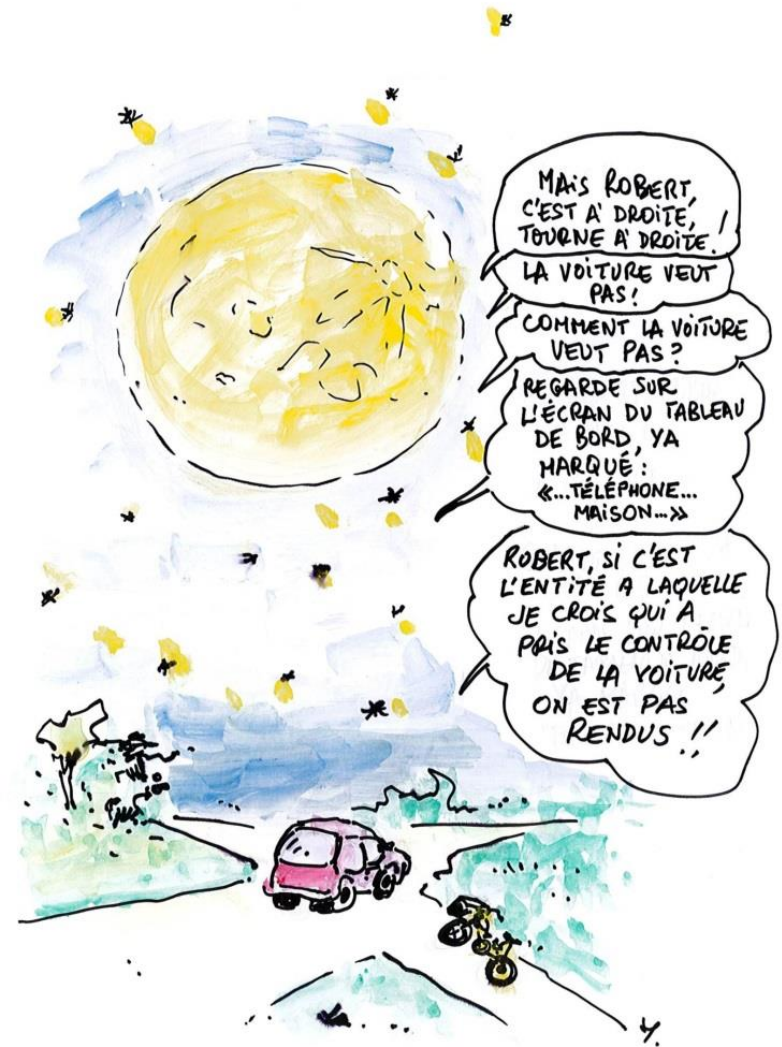 MAIS ROBERT,
C'EST A' DROITE,
TOURNE A' DROITE!
LA VOITURE VEUT
PAS!
COMMENT LA VOITURE
VEUT PAS?
REGARDE SUR
L'ÉCRAN DU TABLEAU
DE BORD, YA
MARQUÉ :
«...TÉLÉPHONE...
MAISON...»
ROBERT, SI C'EST
L'ENTITÉ A LAQUELLE
JE CROIS QUI A
PRIS LE CONTRÔLE
DE LA VOITURE,
ON EST PAS
RENDUS !!
Y.